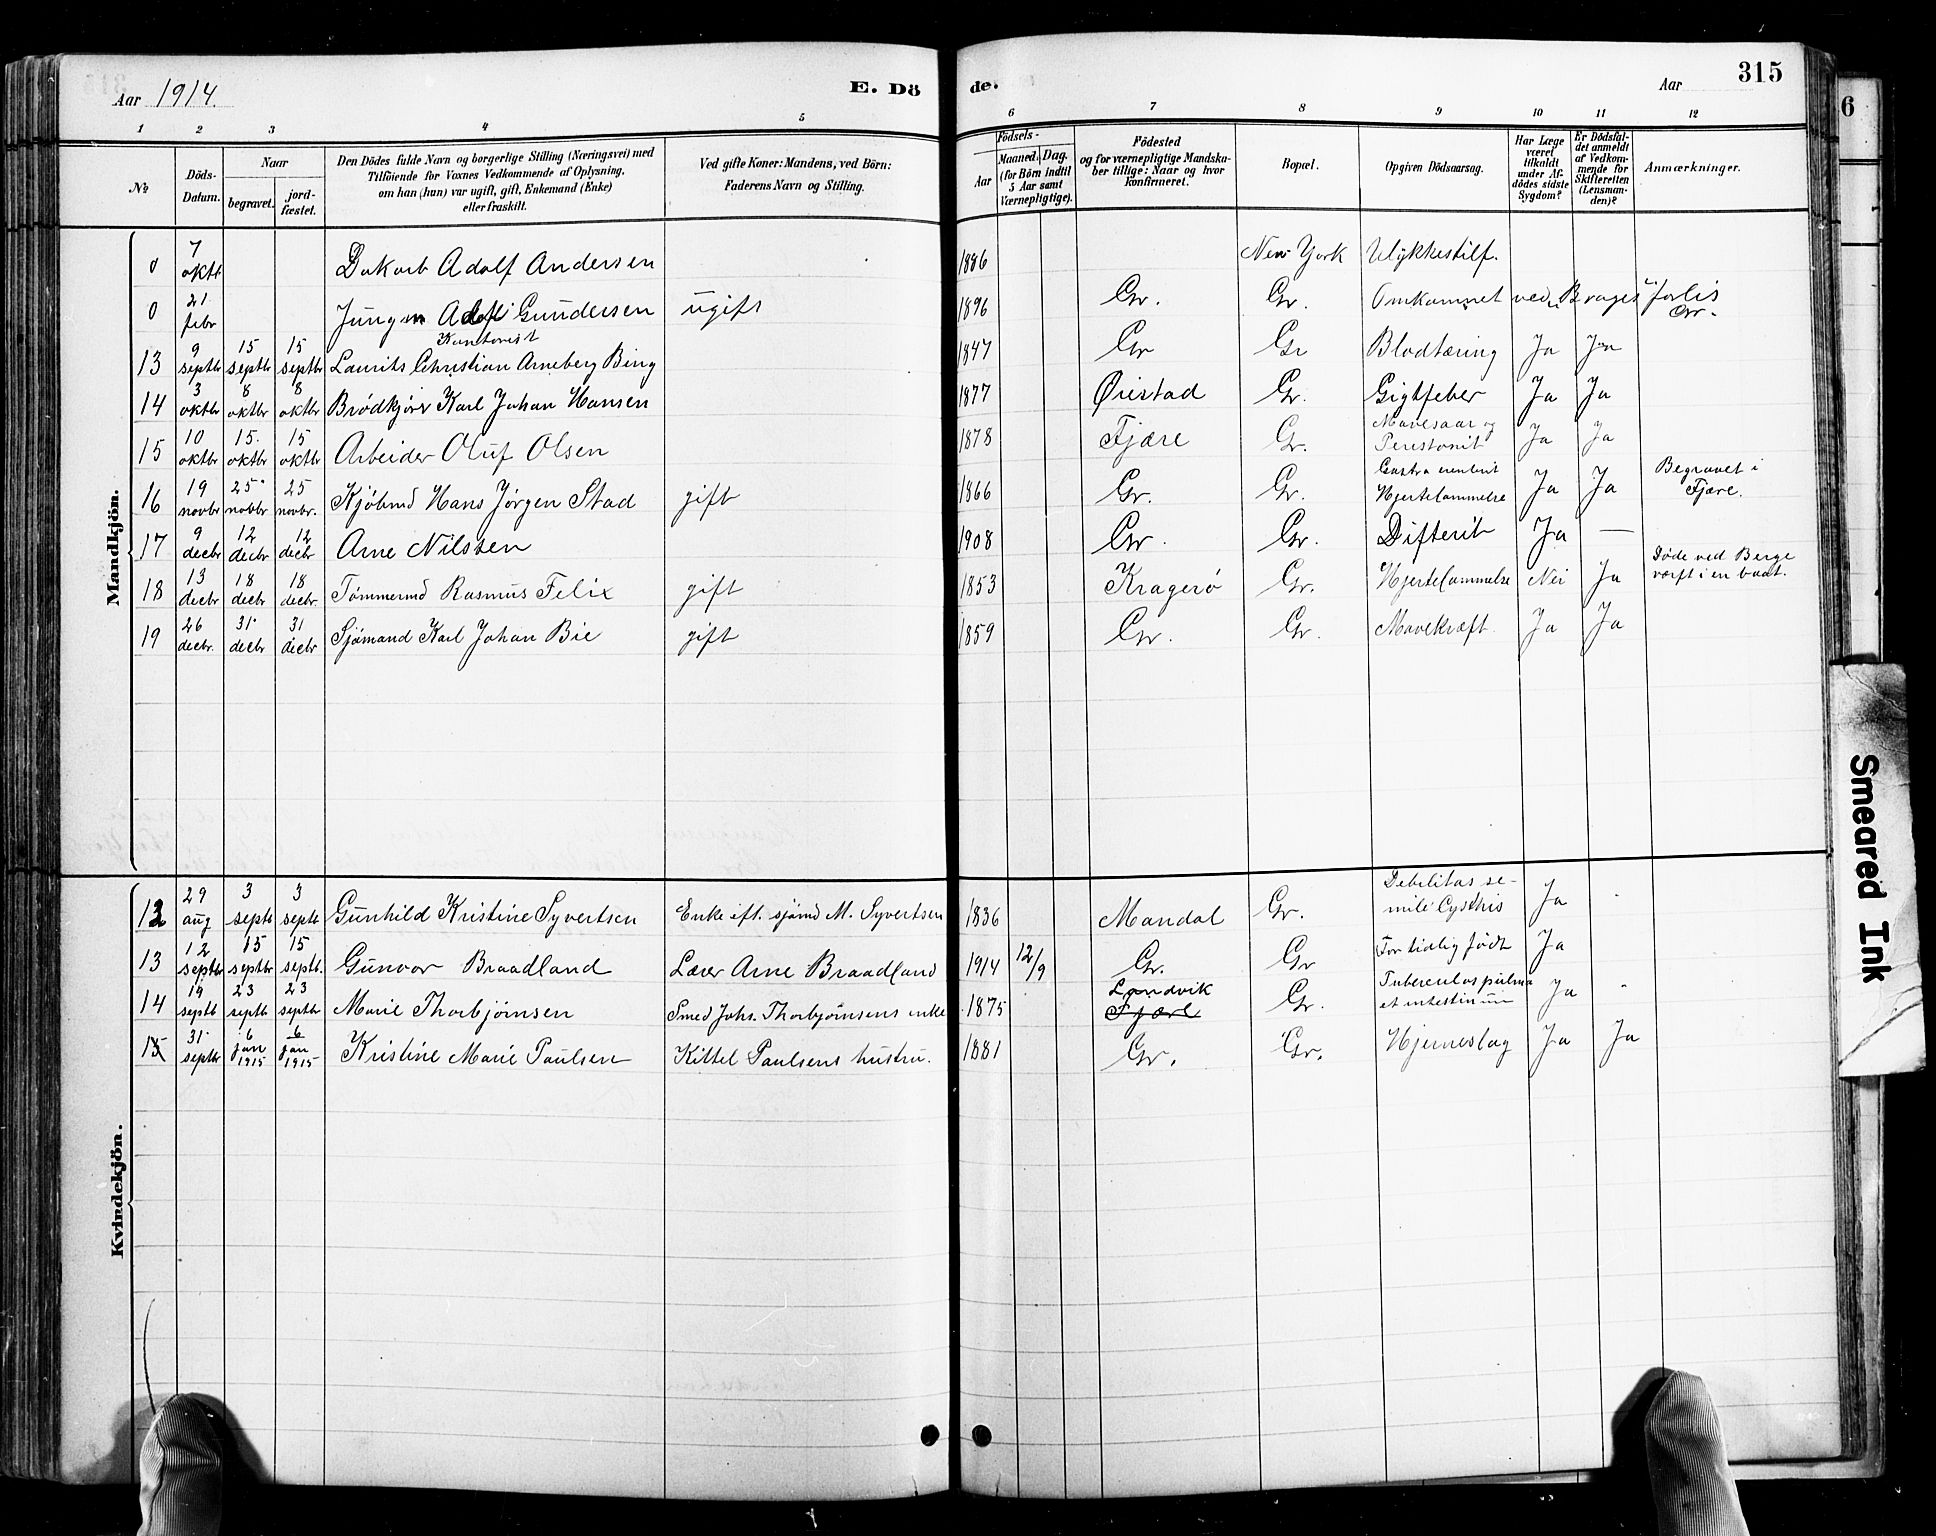 Aar 1914.
E. Dö
de.
Aar
315
6
1 2 3 4 5 6 7 8 9 10 11 12
No
Döds-Datum.
Naar
begravet.
jord-fæstet.
Den Dödes fulde Navn og borgerlige Stilling (Næringsvei) med
Tilföiende for Voxnes Vedkommende af Oplysning,
om han (hun) var ugift, gift, Enkemand (Enke)
eller fraskilt.
Ved gifte Koner: Mandens, ved Börn:
Faderens Navn og Stilling.
Födsels-
Aar
Maaned. Dag.
(for Börn indtil
5 Aar samt
Værnepligtige).
Födested
og for værnepligtige Mandska-
ber tillige: Naar og hvor
konfirmeret.
Bopæl.
Opgiven Dödsaarsag.
Har Læge
været
tilkaldt
under Af-
dödes sidste
Sygdom?
Er Dödsfal-
det anmeldt
af Vedkom-
mende for
Skifteretten
(Lensman-
den)?
Anmærkninger.
Mandkjön.
0 7 oktb Adolf Andersen 1886 New York Ulykkestilf.
0 21 febr Jungm Adolf Gundersen ugift 1896 Gr. Gr. Omkommet ved "Brages" forlis
Kontorist
13 9 septb 15 septb 15 septb Laurits Christian Arneberg Bing 1847 Gr Gr Blodtæring Ja Ja
14 3 oktbr 8 oktbr 8 oktbr Brödkjörer Karl Johan Hansen 1877 Øiestad Gr. Gigtfeber Ja Ja
15 10 oktbr 15. oktbr 15 oktbr Arbeider Oluf Olsen 1878 Fjære Gr. Mavesaar og Peristonit Ja Ja
16 19 novbr 25 novbr 25 novbr. Kjöbmd Hans Jörgen Stad gift 1866 Gr. Gr. Hjertelammelse Ja Ja Begravet i Fjære.
17 9 decbr 12 decbr 12 decbr Arne Nilsen 1908 Gr. Gr. Difterit Ja —
18 13 decbr 18 decbr 18 decbr. Tömmermd Rasmus Felix gift 1853 Kragerö Gr. Hjertelammelse Nei Ja Döde ved Berge værft i en baat.
19 26 decbr. 31 decbr 31 decbr Sjömand Karl Johan Bie gift 1859 Gr. Gr. Mavekræft Ja Ja
Kvindekjön.
12 29 aug 3 septb 3 septb Gunhild Kristine Syvertsen Enke eft. sjömd M. Syvertsen 1836 Mandal Gr. Debilitas se-
mile Cysthis Ja
13 12 septbr 15 septbr 15 septb. Gunvor Braadland Lærer Arne Braadland 1914 12/9 Gr. Gr For tidlig födt Ja
14 19 septb 23 septb 23 septbr Marie Thorbjörnsen Smed Johs. Thorbjörnsens enke 1875 Landvik Fjære Gr. Tuberculos pulmo et intestinum Ja
15 31 septbr 6 jan 1915 6 jan 1915 Kristine Marie Paulsen Kittel Paulsens hustru. 1881 Gr. Gr. Hjerneslag Ja Ja
Smeared Ink